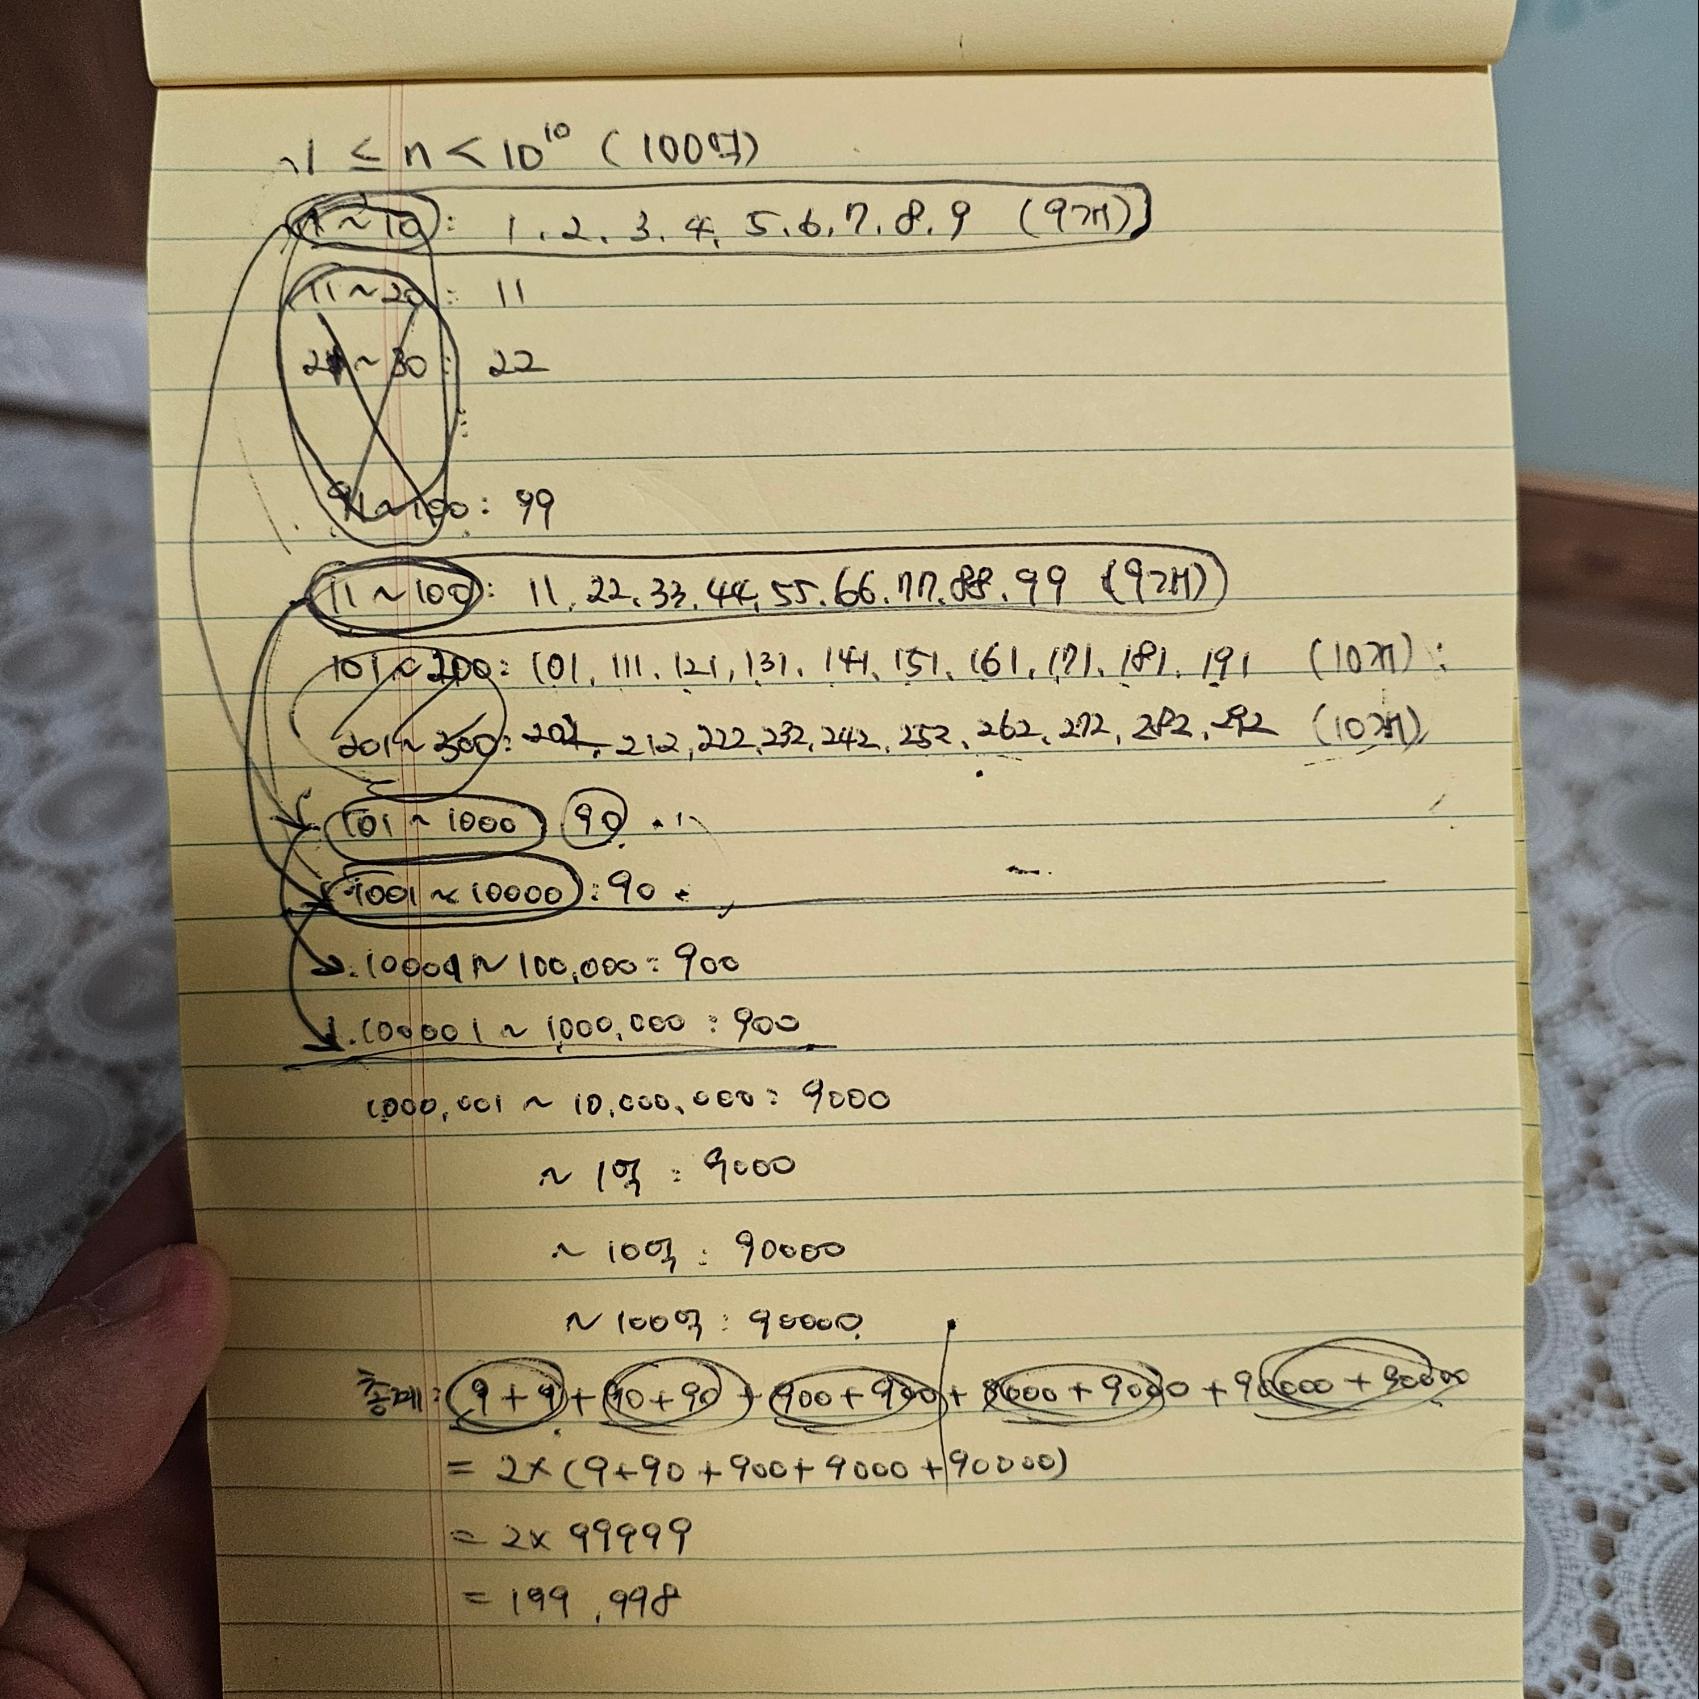 1 ≤ n < 10^10 (100억)
1 ~ 10 : 1, 2, 3, 4, 5, 6, 7, 8, 9 (9개)
11 ~ 20 : 11
21 ~ 30 : 22
⋮
91 ~ 100 : 99
11 ~ 100 : 11, 22, 33, 44, 55, 66, 77, 88, 99 (9개)
101 ~ 200 : 101, 111, 121, 131, 141, 151, 161, 171, 181, 191 (10개) :
201 ~ 300 : 202, 212, 222, 232, 242, 252, 262, 272, 282, 292 (10개)
101 ~ 1000 90
1001 ~ 10000 : 90
10001 ~ 100,000 : 900
100001 ~ 1000,000 : 900
1000,001 ~ 10,000,000 : 9000
~ 1억 : 9000
~ 10억 : 90000
~ 100억 : 90000
총계 : 9 + 9 + 90 + 90 + 900 + 900 + 9000 + 9000 + 90000 + 90000
= 2 × (9 + 90 + 900 + 9000 + 90000)
= 2 × 99999
= 199,998